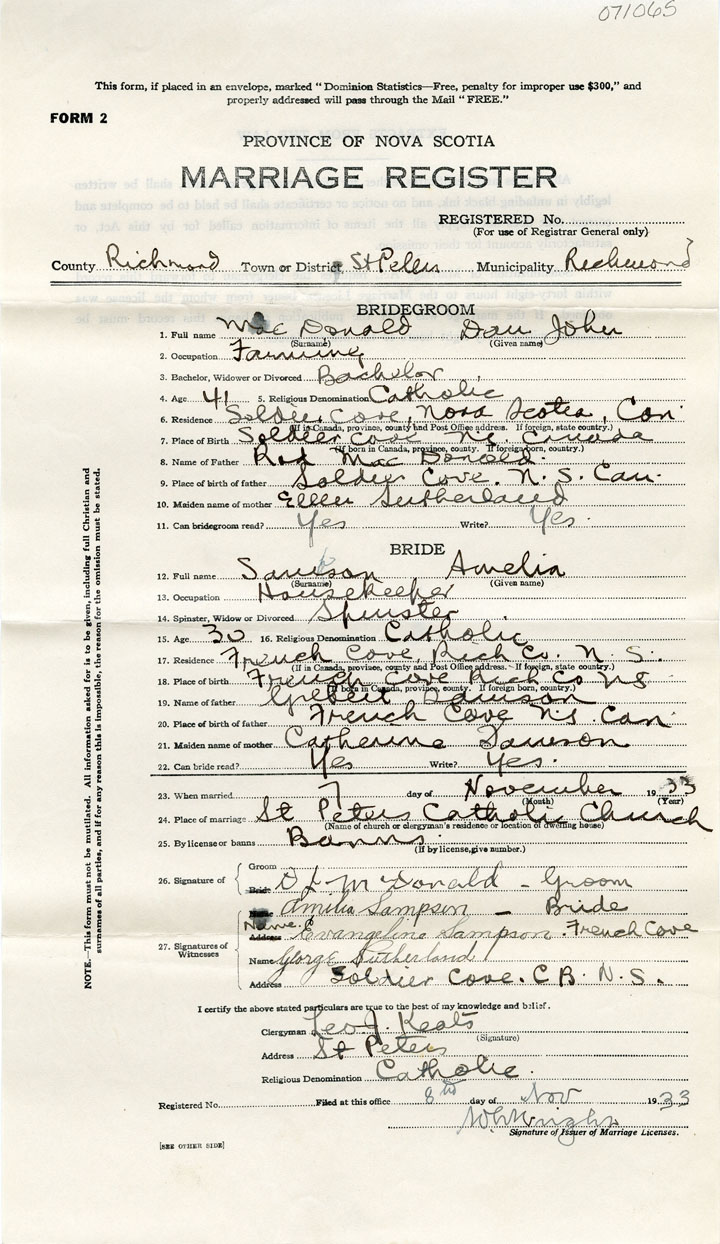 071065
This form, if placed in an envelope, marked "Dominion Statistics—Free, penalty for improper use $300," and
properly addressed will pass through the Mail "FREE."
FORM 2
PROVINCE OF NOVA SCOTIA
MARRIAGE REGISTER
REGISTERED No.
(For use of Registrar General only)
County Richmond Town or District St Peters Municipality Richmond
BRIDEGROOM
1. Full name Mac Donald Dan John
(Surname) (Given name)
2. Occupation Farming
3. Bachelor, Widower or Divorced Bachelor
4. Age 41 5. Religious Denomination Catholic
6. Residence Soldier Cove, Nova Scotia, Can.
(If in Canada, province, county and Post Office address. If foreign, state country.)
7. Place of Birth Soldier Cove N.S. Canada
(If born in Canada, province, county. If foreign born, country.)
8. Name of Father Rod Mac Donald
9. Place of birth of father Soldier Cove. N. S. Can.
10. Maiden name of mother Ellen Sutherland
11. Can bridegroom read? Yes Write? Yes.
BRIDE
12. Full name Samson Amelia
(Surname) (Given name)
p
13. Occupation Housekeeper
14. Spinster, Widow or Divorced Spinster
15. Age 30 16. Religious Denomination Catholic
17. Residence French Cove, Rich Co. N. S.
(If in Canada, province, county and Post Office address. If foreign, state country.)
18. Place of birth French Cove Rich Co NS
(If born in Canada, province, county. If foreign born, country.)
19. Name of father Samson
20. Place of birth of father French Cove N.S. Can
21. Maiden name of mother Catherine Samson
22. Can bride read? Yes Write? Yes.
23. When married 7 day of November 1933
(Month) (Year)
24. Place of marriage St Peters Catholic Church
(Name of church or clergyman's residence or location of dwelling house)
25. By license or banns Banns.
(If by license, give number.)
26. Signature of
Groom
Bride D J McDonald - Groom
Name Amelia Sampson - Bride
27. Signatures of Witnesses
Name &
Address Evangeline Sampson. French Cove
Name George Sutherland
Address Soldier Cove. C B. N. S.
I certify the above stated particulars are true to the best of my knowledge and belief.
Clergyman Leo J. Keats
(Signature)
Address St Peters
Religious Denomination Catholic.
Registered No. Filed at this office 8th day of Nov 1933
Signature of Issuer of Marriage Licenses.
[SEE OTHER SIDE]
NOTE.—This form must not be mutilated. All information asked for is to be given, including full Christian and
surnames of all parties, and if for any reason this is impossible, the reason for the omission must be stated.